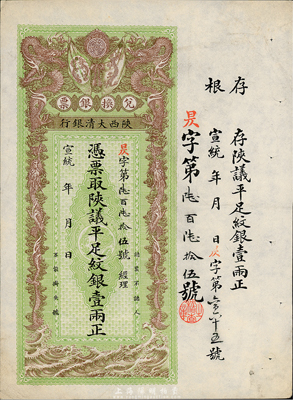 存根
存陝議平足紋銀壹兩正
宣統 年 月 日 昃字第六百六十五號
昃字第陸百陸拾伍號
兌換銀票
陝西大清銀行
昃字第陸百陸拾伍號 經理
憑票取陝議平足紋銀壹兩正
宣統 年 月 日
認票不認人